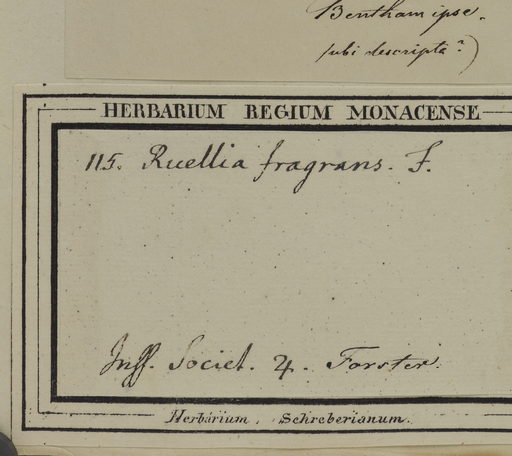 Bentham ipse.
(ubi descripta?)
HERBARIUM REGIUM MONACENSE
115. Ruellia fragrans. F.
Inss. Societ. 4. Forster.
Herbarium. Schreberianum.